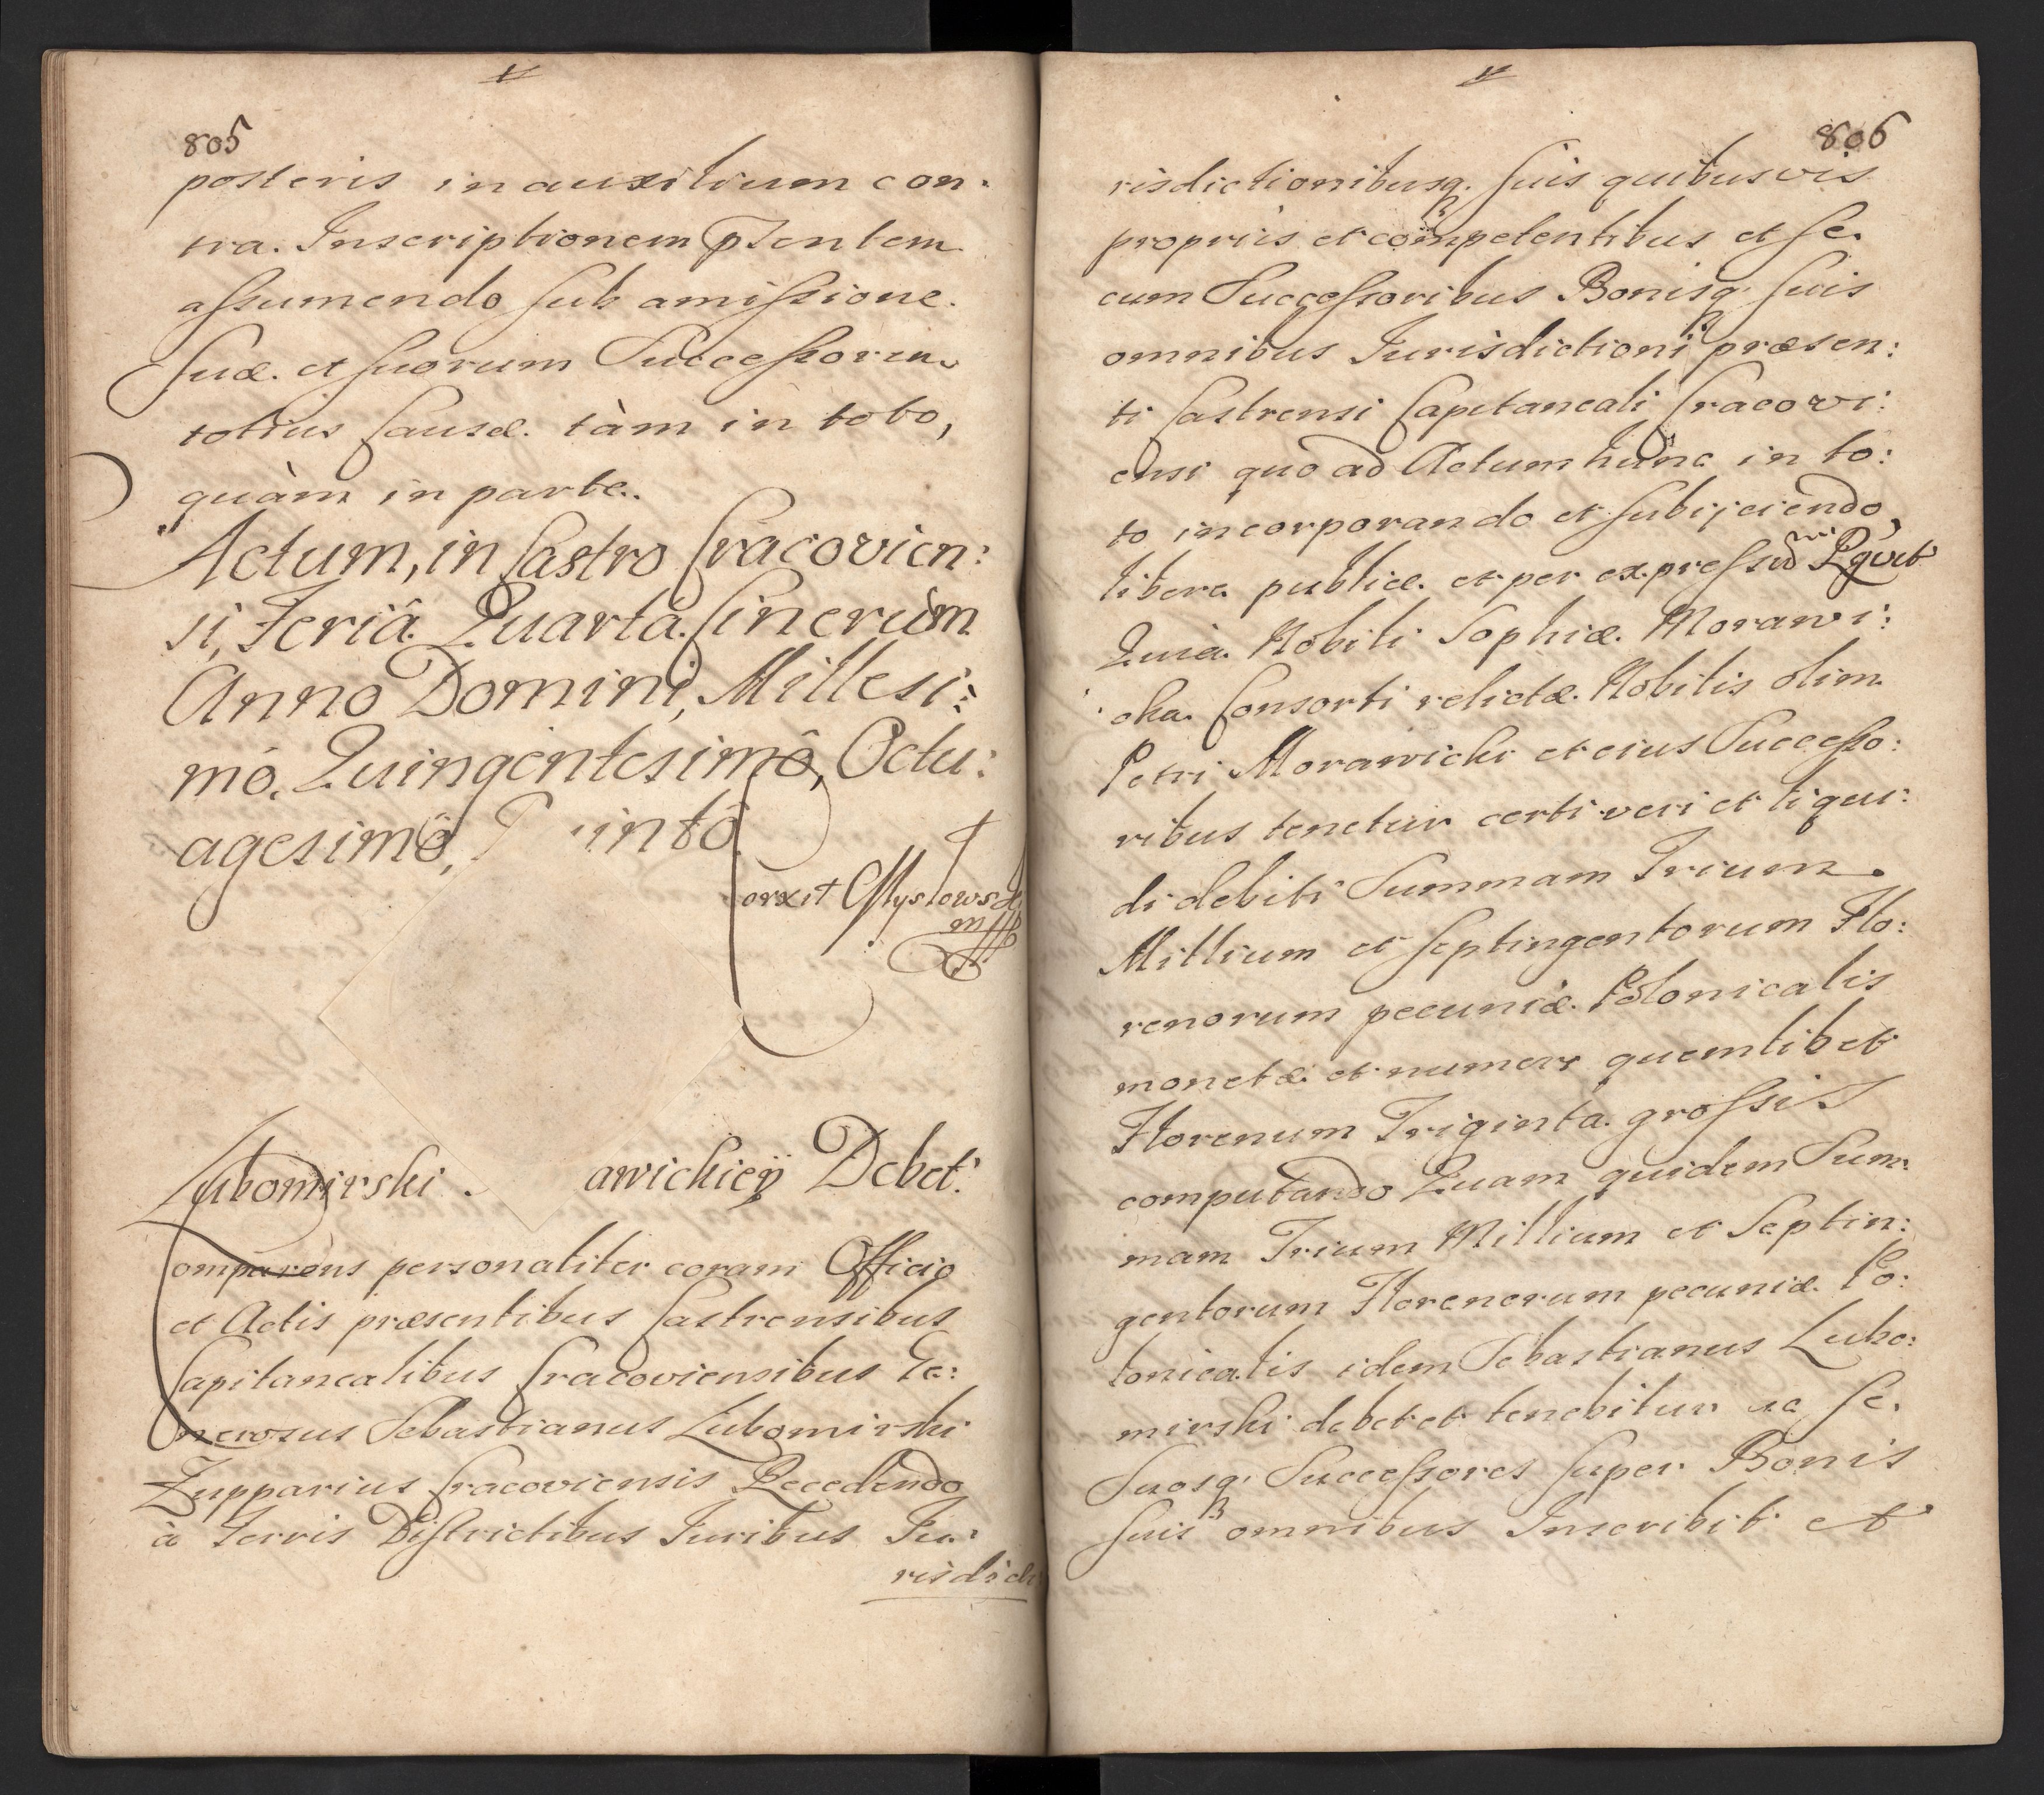 805
posteris in auxilium con.
tra. Inscriptionem pntem
assumendo sub amissione.
suæ. et suorum Successorum
totius Causæ. tàm in toto,
quàm in parte.
Actum, in Castro Cracovien:
si, Feriâ Quartâ. Cinerum
Anno Domini, Millesi:
mô, Quingentesimô, Octu:
agesimô, intô
Corxit Mysłowski
mpp
Lubomirski awickieÿ Debet.
Comparens personaliter coram Officio
et Actis præsentibus Castrensibus
Capitanealibus Cracoviensibus Ge:
nerosus Sebastianus Lubomirski
Zupparius Cracoviensis Recedendo
à Terris Districtibus Iuribus Iu:
risdicti
806
risdictionibusq. suis quibusvis
propriis et competentibus et se.
cum Successoribus Bonisq. suis
omnibus Iurisdictioni præsen:
ti Castrensi Capitaneali Cracovi:
ensi quo ad Actum hunc in to:
to incorporando et subijciendo
libere publice. et per expressum
Quia. Nobili Sophiæ. Morawi:
cka. Consorti relictæ. Nobilis olim
Petri Morawicki et eius Successo:
ribus tenetur certi veri et liqui:
di debiti Summam Trium.
Millium et septingentorum Flo:
renorum pecuniæ. Polonicalis
monetæ et numeri quemlibet
Florenum Triginta. grossis
computando Quam quidem Sum:
mam Trium Millium et Septin:
gentorum Florenorum pecuniæ. Po:
lonicalis idem Sebastianus Lubo:
mirski debet et tenebitur ac se.
Suosq. Successores super Bonis
suis omnibus Inscribit et